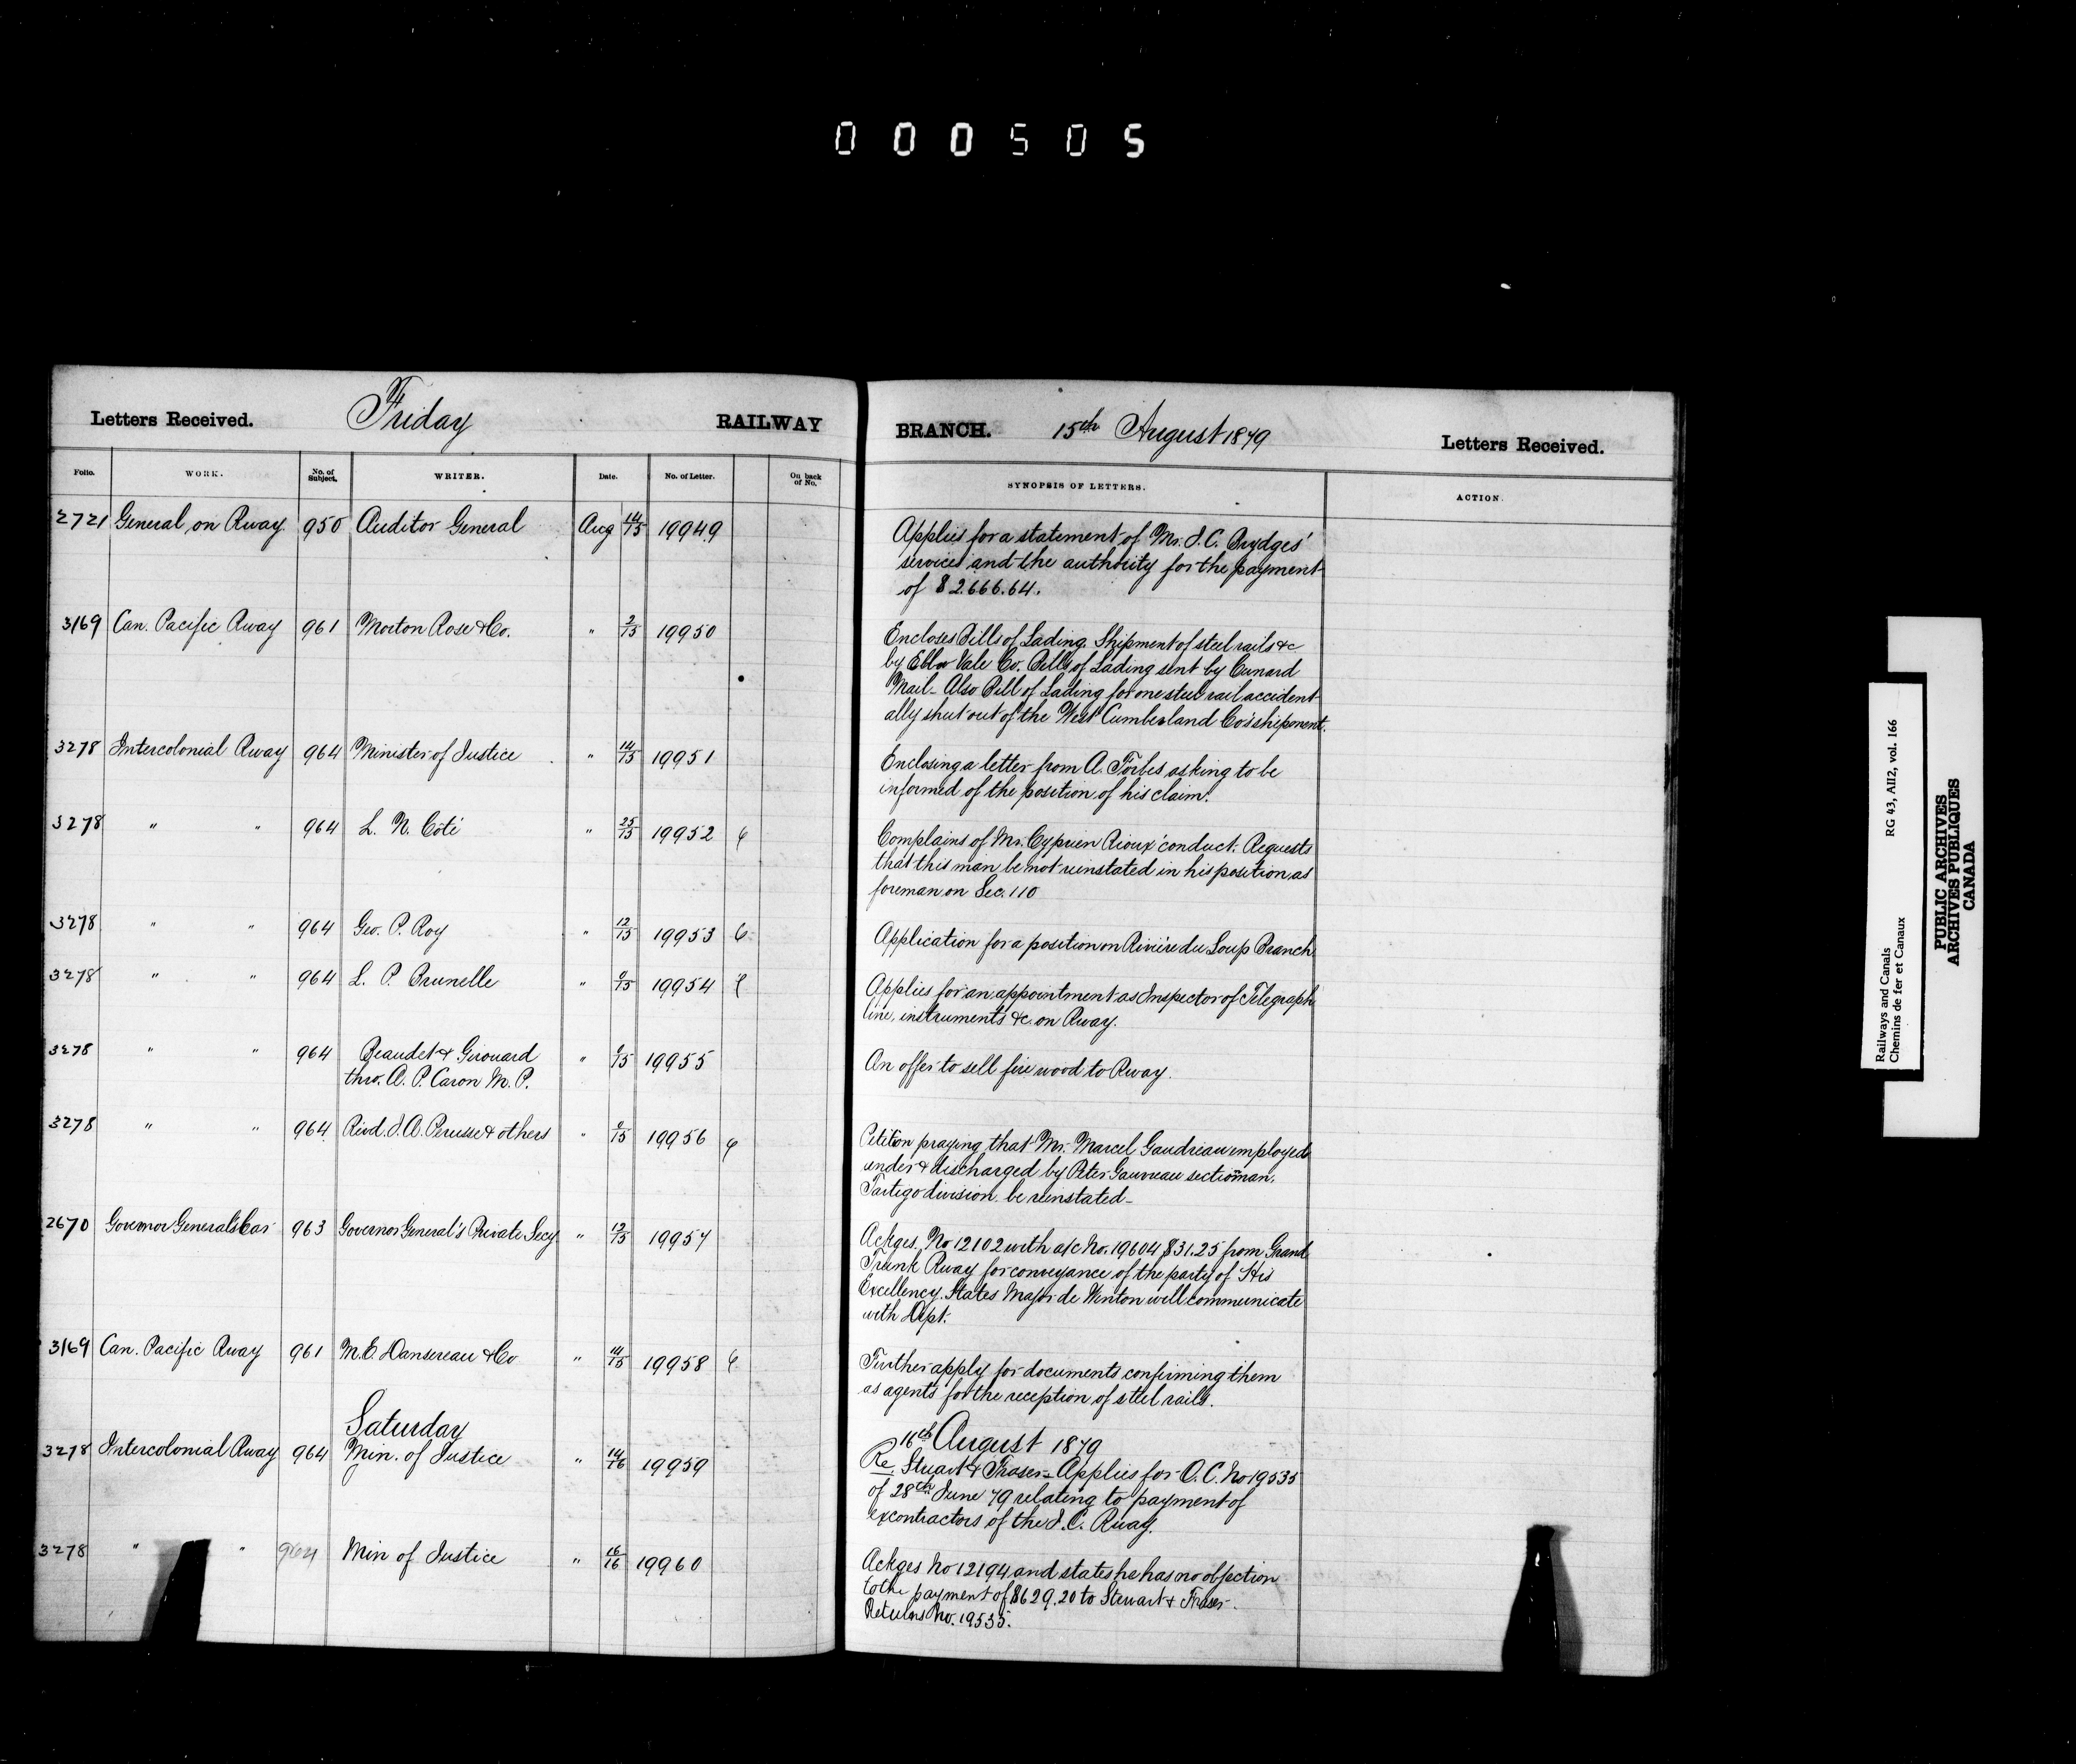 000505
Letters Received. Friday RAILWAY
Folio. WORK. No. of Subject. WRITER. Date. No. of Letter. On back of No.
2721 General on Rway 950 Auditor General Aug 14/15 19949
3169 Can. Pacific Rway 961 Morton Rose & Co. " 2/15 19950
3278 Intercolonial Rway 964 Minister of Justice " 14/15 19951
3278 " " 964 L. N. Côté " 25/15 19952
3278 " " 964 Geo. P. Roy " 12/15 19953
3278 " " 964 L. P. Brunelle " /15 19954
3278 " " 964 Beaudet & Girouard " /15 19955
thro. A. P. Caron M. P.
3278 " " 964 Revd. J. A. Perusse & others " /15 19956
2670 Governor General's Car 963 Governor General's Private Secy " 12/15 19957
3169 Can. Pacific Rway 961 M. E. Dansereau & Co " 14/15 19958
Saturday
3278 Intercolonial Rway 964 Min. of Justice " 14/16 19959
3278 " " 964 Min of Justice " 16/16 19960
BRANCH. 15th August 1879 Letters Received.
SYNOPSIS OF LETTERS. ACTION.
Applies for a statement of Mr. J. C. Brydges'
services and the authority for the payment
of $2.666.64.
Encloses Bills of Lading. Shipment of steel rails &c
by Ebbw Vale Co. Bills of Lading sent by Cunard
Mail - Also Bill of Lading for one steel rail accident
ally shut out of the West Cumberland Co's shipment.
Enclosing a letter from A. Forbes asking to be
informed of the position of his claim.
Complains of Mr. Cyprien Rioux' conduct. Requests
that this man be not reinstated in his position as
foreman on Sec. 110
Application for a position on Rivière du Loup Branch
Applies for an appointment as Inspector of Telegraph
line, instruments &c. on Rway.
An offer to sell fire wood to Rway.
Petition praying that Mr. Marcel Gaudreau employed
under & discharged by Peter Gauvreau sectionman.
Tartigo division be reinstated -
Ackges. No 12102 with a/c No. 19604 $31.25 from Grand
Trunk Rway for conveyance of the party of His
Excellency. States Major de Winton will communicate
with Dept.
Further apply for documents confirming them
as agents for the reception of steel rails.
16th August 1879
Re. Stuart & Fraser - Applies for O. C. No 19535
of 28th June 79 relating to payment of
excontractors of the I. C. Rway.
Ackges No 12194 and states he has no objection
to the payment of $629.20 to Stewart & Fraser.
Returns No. 19535.
Railways and Canals RG 43, AII2, vol. 166
Chemins de fer et Canaux
PUBLIC ARCHIVES
ARCHIVES PUBLIQUES
CANADA